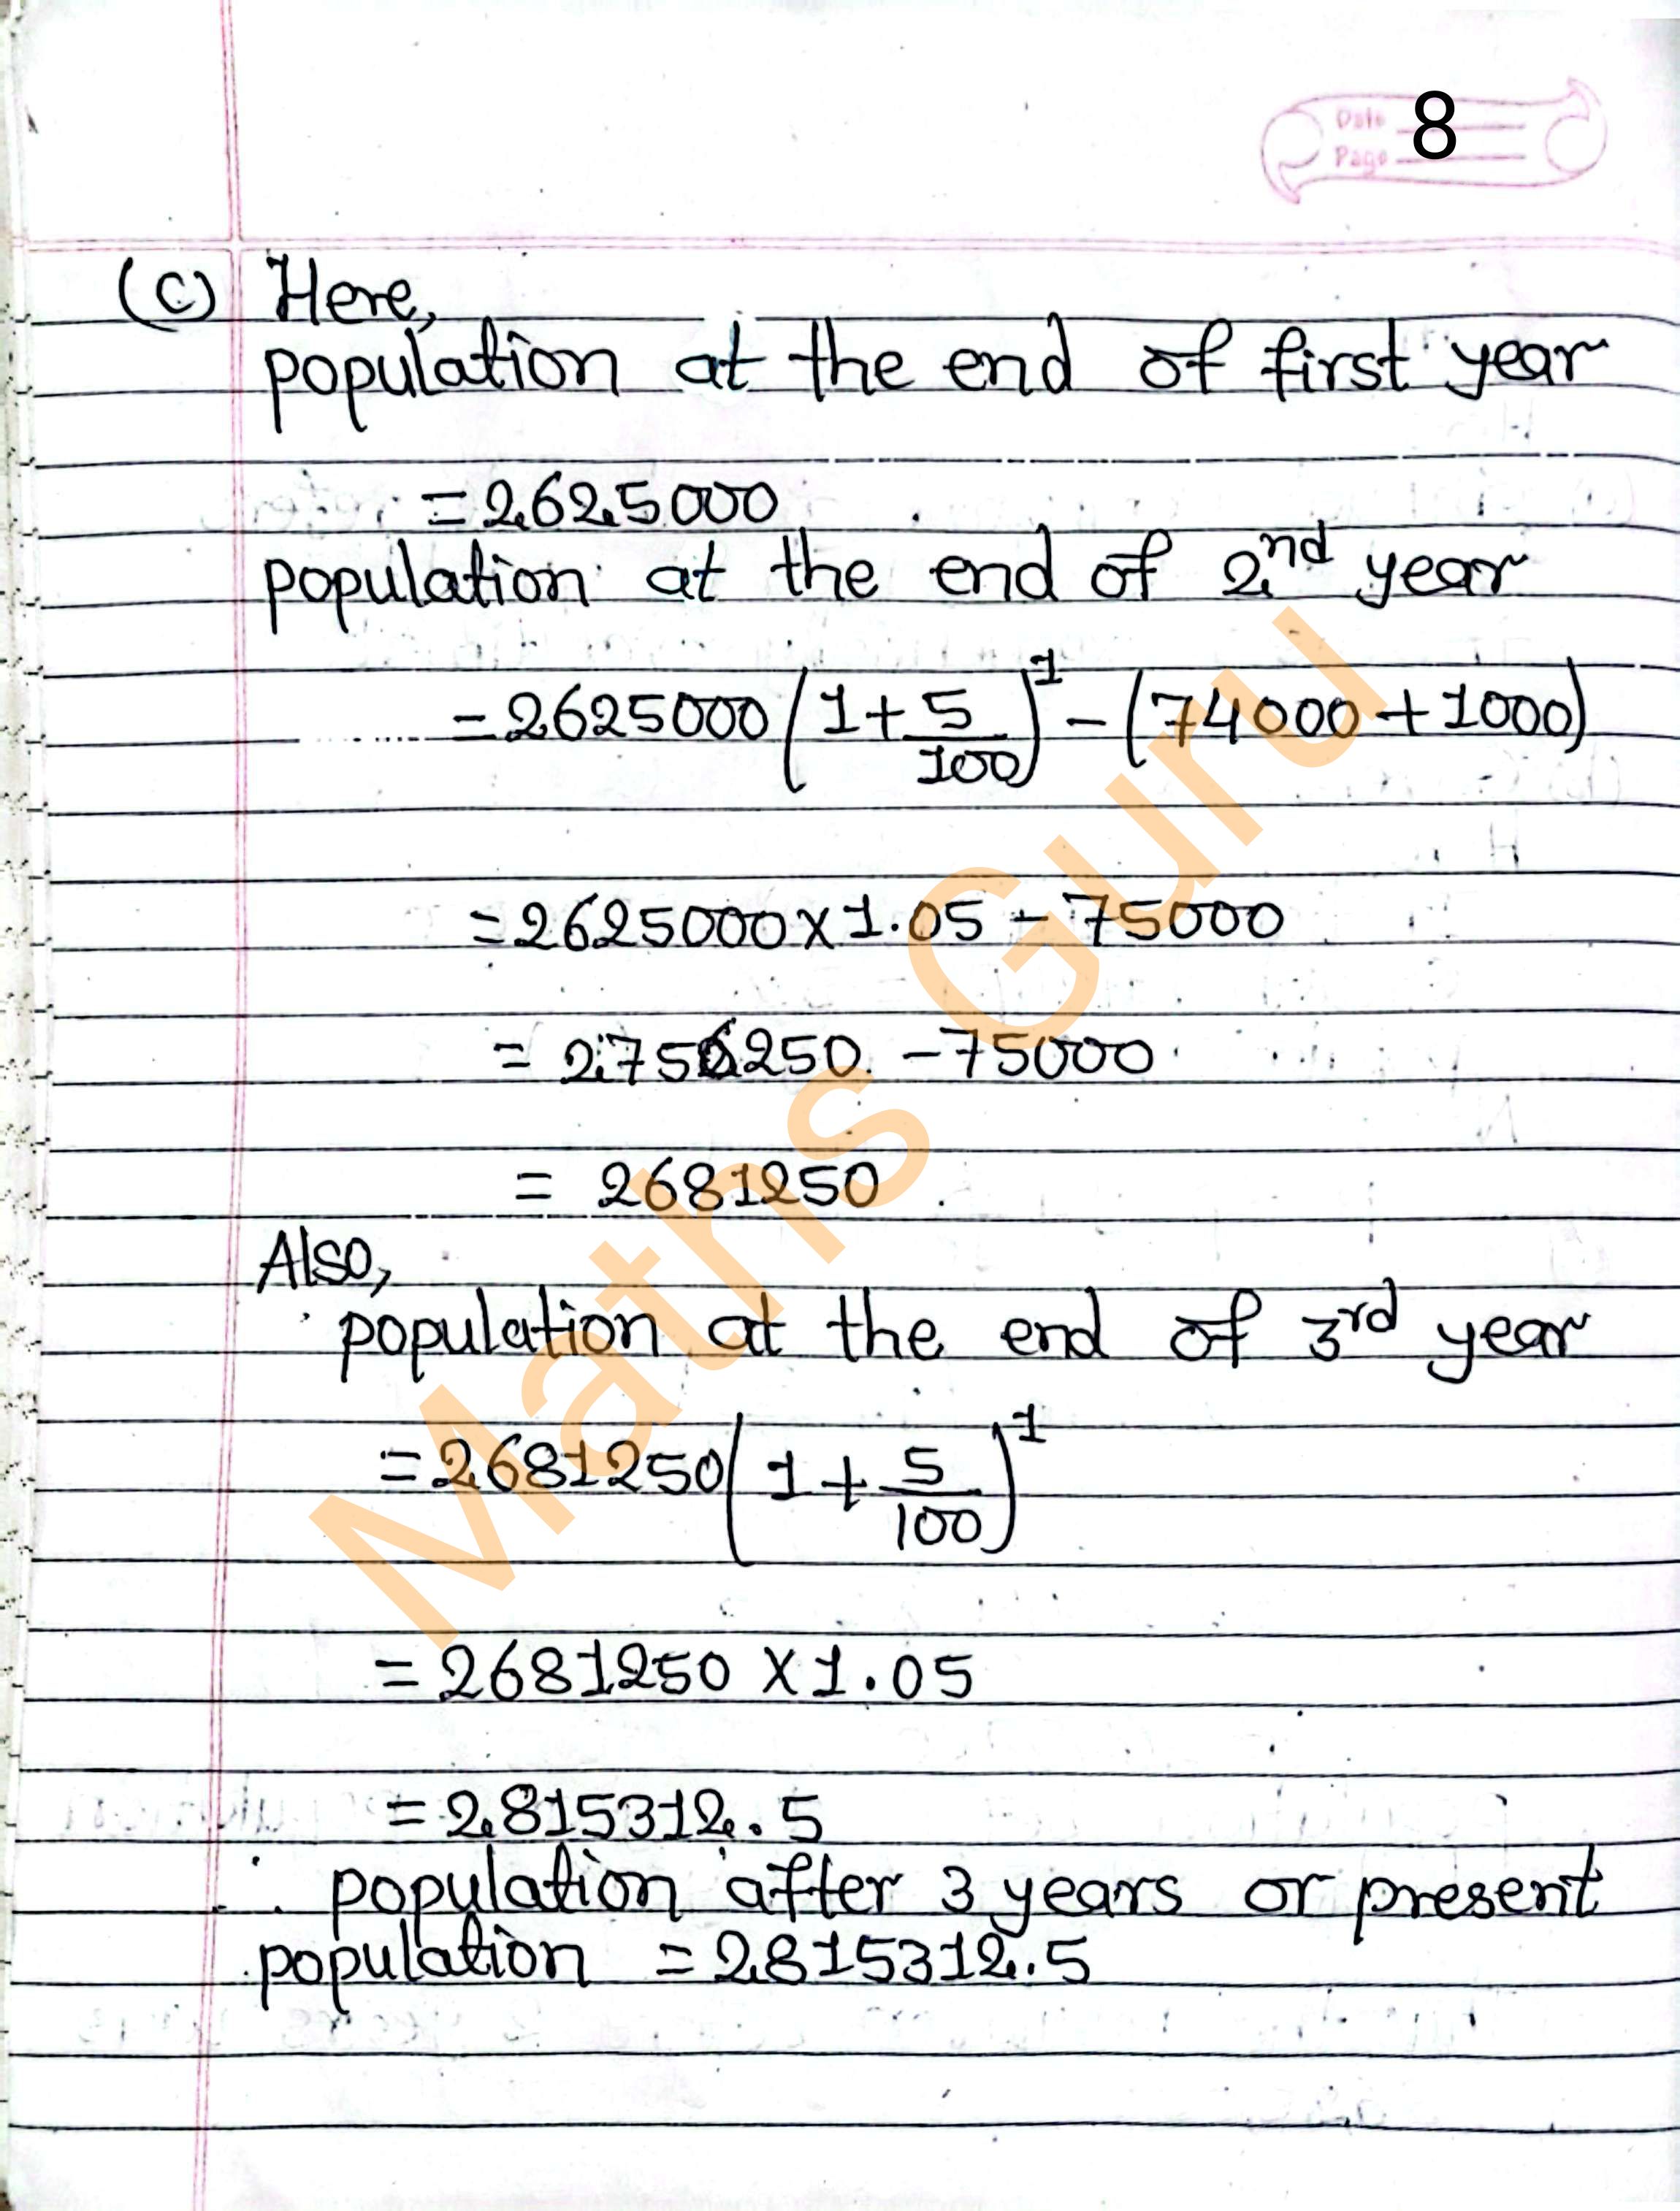 Date
Page
8
(c) Here,
population at the end of first year
=2625000
population at the end of 2nd year
=2625000(1+5/100)^1-(74000+1000)
=2625000×1.05-75000
=2756250-75000
=2681250
Also,
population at the end of 3rd year
=2681250(1+5/100)^1
=2681250×1.05
=2815312.5
∴ population after 3 years or present
population =2815312.5
Maths Guru